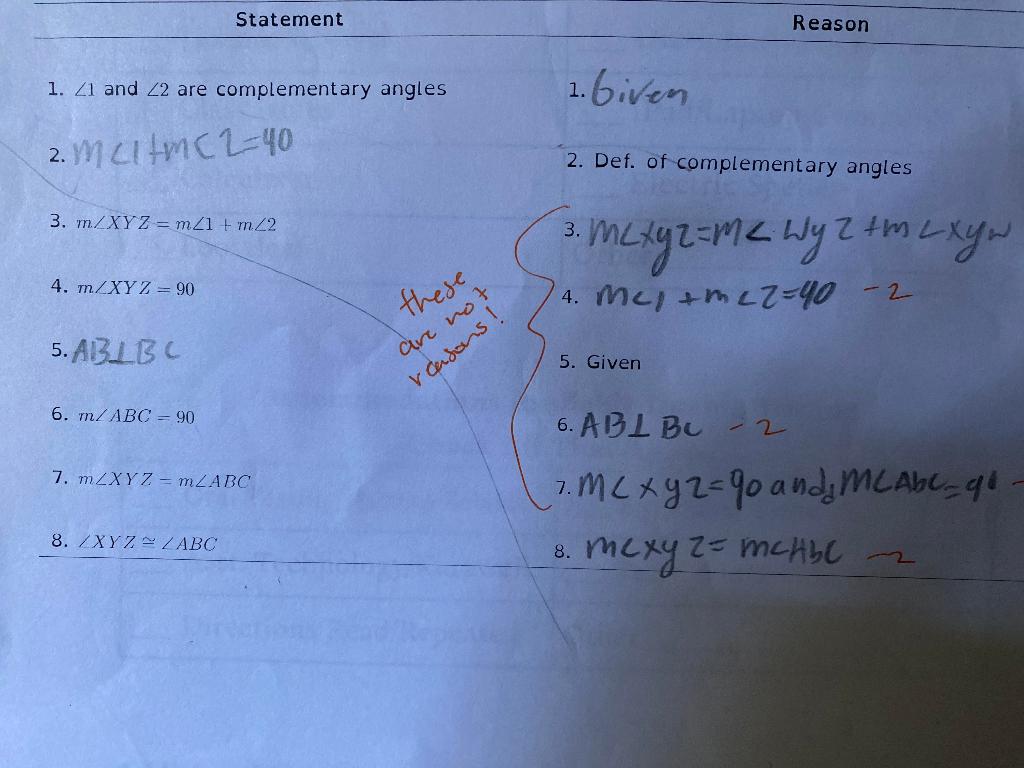 Statement Reason
1. ∠1 and ∠2 are complementary angles 1. Given
2. m<1+m<2=90 2. Def. of complementary angles
3. m∠XYZ = m∠1 + m∠2 3. m<xyz=m<WyZ+m<xyw
4. m∠XYZ = 90 4. m<1+m<2=90 -2
these
are not
reasons!
5. AB⊥BC 5. Given
6. m∠ABC = 90 6. AB⊥BC -2
7. m∠XYZ = m∠ABC 7. m<xyz=90 and m<Abc=90 -
8. ∠XYZ ≅ ∠ABC 8. m<xyz=m<AbC -2